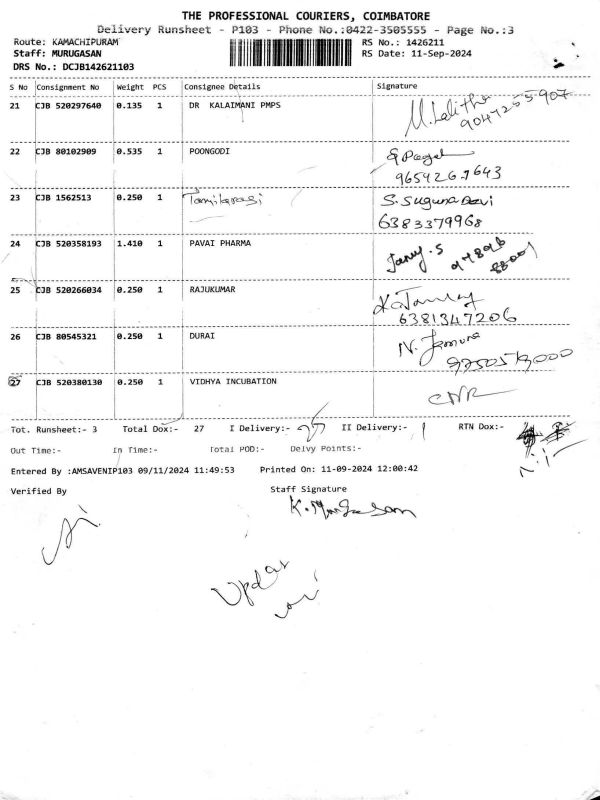 THE PROFESSIONAL COURIERS, COIMBATORE
Delivery Runsheet - P103 - Phone No.:0422-3505555 - Page No.:3
Route: KAMACHIPURAM RS No.: 1426211
Staff: MURUGASAN RS Date: 11-Sep-2024
DRS No.: DCJB142621103
S No Consignment No Weight PCS Consignee Details Signature
21 CJB 520297640 0.135 1 DR KALAIMANI PMPS M. Lalitha
22 CJB 80102909 0.535 1 POONGODI
23 CJB 1562513 0.250 1 Tamilarasi S. Suguna Devi
6383379968
24 CJB 520358193 1.410 1 PAVAI PHARMA
25 CJB 520266034 0.250 1 RAJUKUMAR
6381347206
26 CJB 80545321 0.250 1 DURAI N. Jamuna
27 CJB 520380130 0.250 1 VIDHYA INCUBATION CNR
Tot. Runsheet:- 3 Total Dox:- 27 I Delivery:- II Delivery:- 1 RTN Dox:-
Out Time:- In Time:- Total POD:- Delvy Points:-
Entered By :AMSAVENIP103 09/11/2024 11:49:53 Printed On: 11-09-2024 12:00:42
Verified By Staff Signature